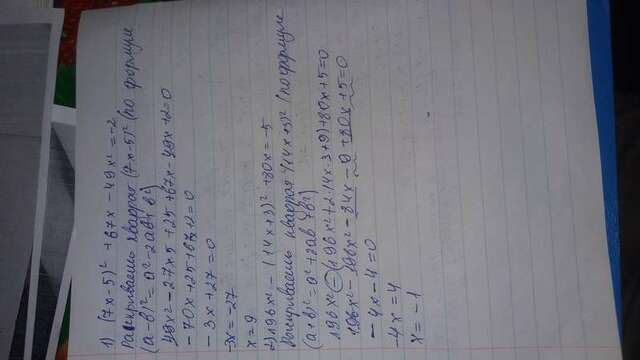 1) (7x-5)² +67x -49x² =-2
Раскрываешь квадрат (7x-5)² (по формуле
(a-b)²=a²-2ab+b²)
49x²-27x5+25+67x-49x+2=0
-70x+25+67+2=0
-3x+27=0
-3x=-27
x=9
2) 196x² -(14x+3)² +80x=-5
Раскрываешь квадрат (14x+3)² (по формуле
(a+b)²=a²+2ab+b²)
196x²-(196x²+2·14x·3+9)+80x+5=0
196x²-196x²-84x-9+80x+5=0
-4x-4=0
-4x=4
x=-1